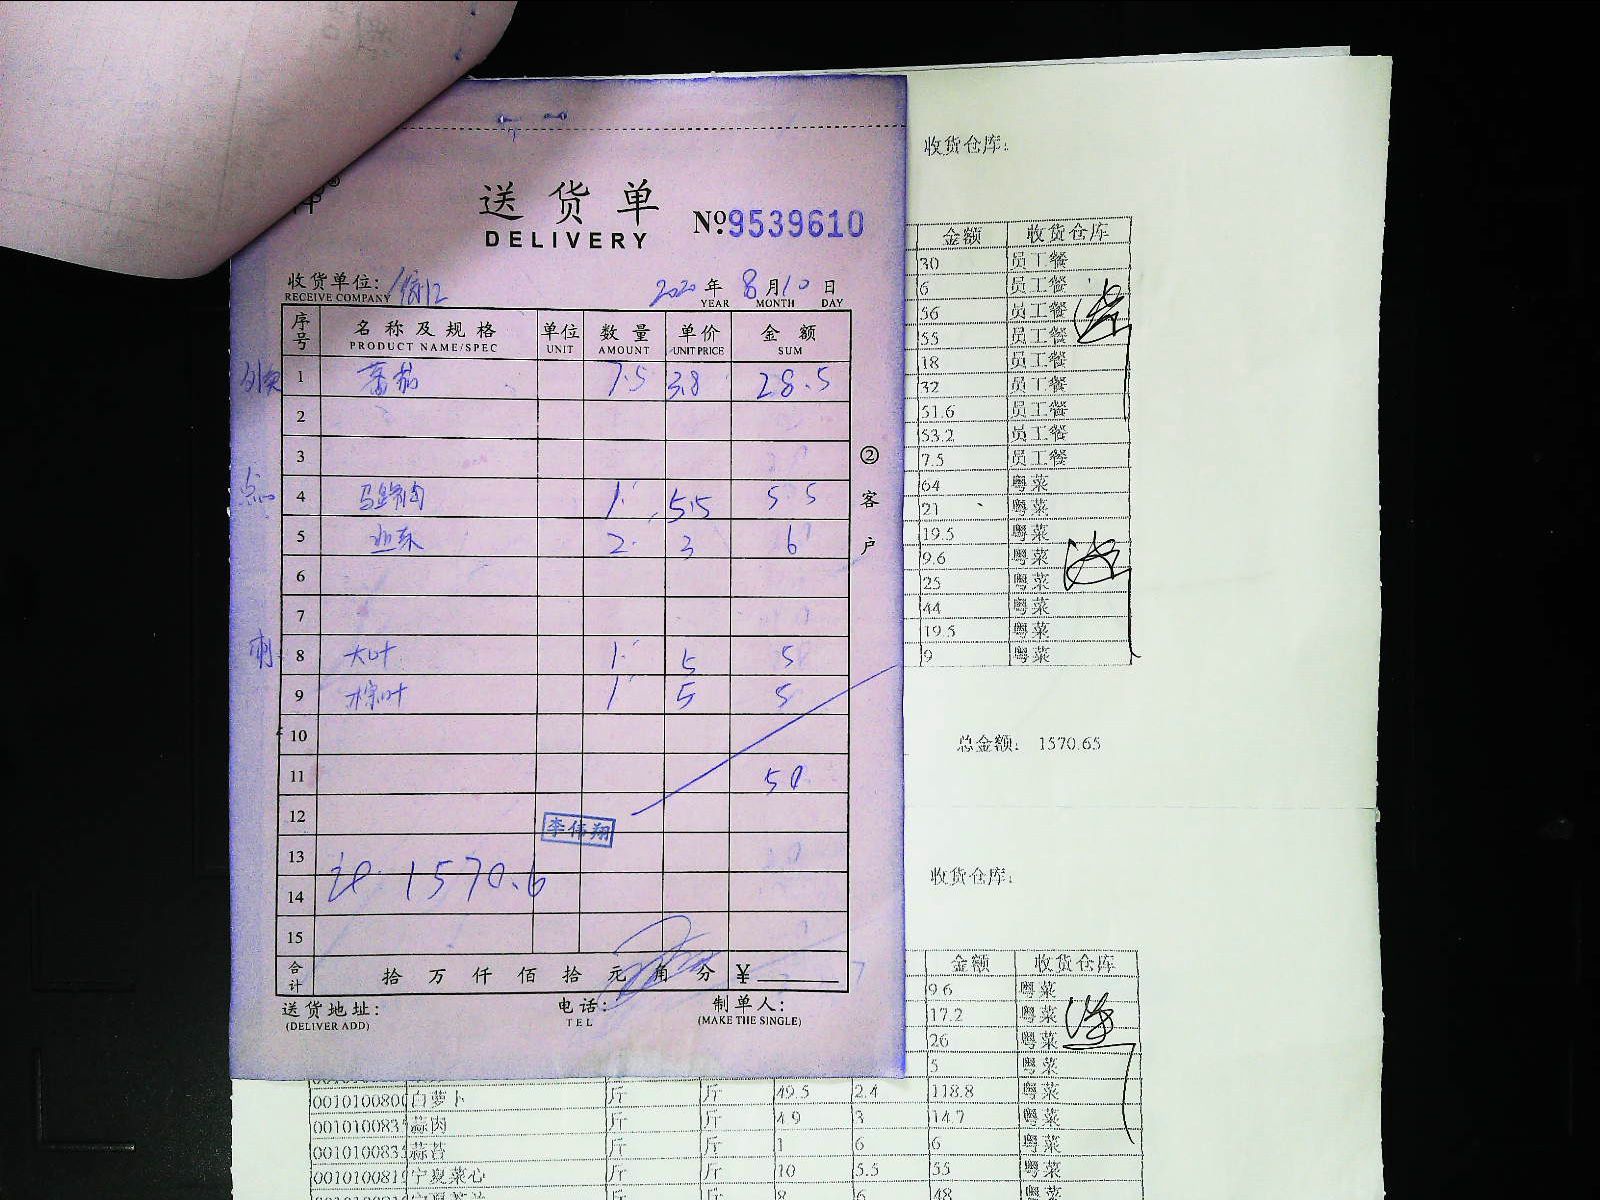 送货单
DELIVERY
№9539610
收货单位:
RECEIVE COMPANY
2020年8月10日
YEAR MONTH DAY
序号 名称及规格 单位 数量 单价 金额
PRODUCT NAME/SPEC UNIT AMOUNT UNIT PRICE SUM
1 蕃茄 7.5 3.8 28.5
2
3
②客户
点心 4 马蹄肉 1 5.5 5.5
5 2 3 6
6
7
8 大叶 1 5 5
9 棕叶 1 5 5
10
11 50
12
李伟翔
13
14 1570.6
15
合计 拾万仟佰拾元角分 ¥
送货地址: 电话: 制单人:
(DELIVER ADD) TEL (MAKE THE SINGLE)
收货仓库:
金额 收货仓库
30 员工餐
6 员工餐
56 员工餐
55 员工餐
18 员工餐
32 员工餐
51.6 员工餐
53.2 员工餐
7.5 员工餐
64 粤菜
21 粤菜
19.5 粤菜
9.6 粤菜
25 粤菜
44 粤菜
19.5 粤菜
9 粤菜
总金额: 1570.65
收货仓库:
金额 收货仓库
96 粤菜
17.2 粤菜
26 粤菜
5 粤菜
0010100800 白萝卜 斤 斤 49.5 2.4 118.8 粤菜
001010083 蒜肉 斤 斤 4.9 3 14.7 粤菜
001010083 蒜苔 斤 斤 1 6 6 粤菜
001010081 宁夏菜心 斤 斤 10 5.5 55 粤菜
斤 斤 8 6 48 粤菜